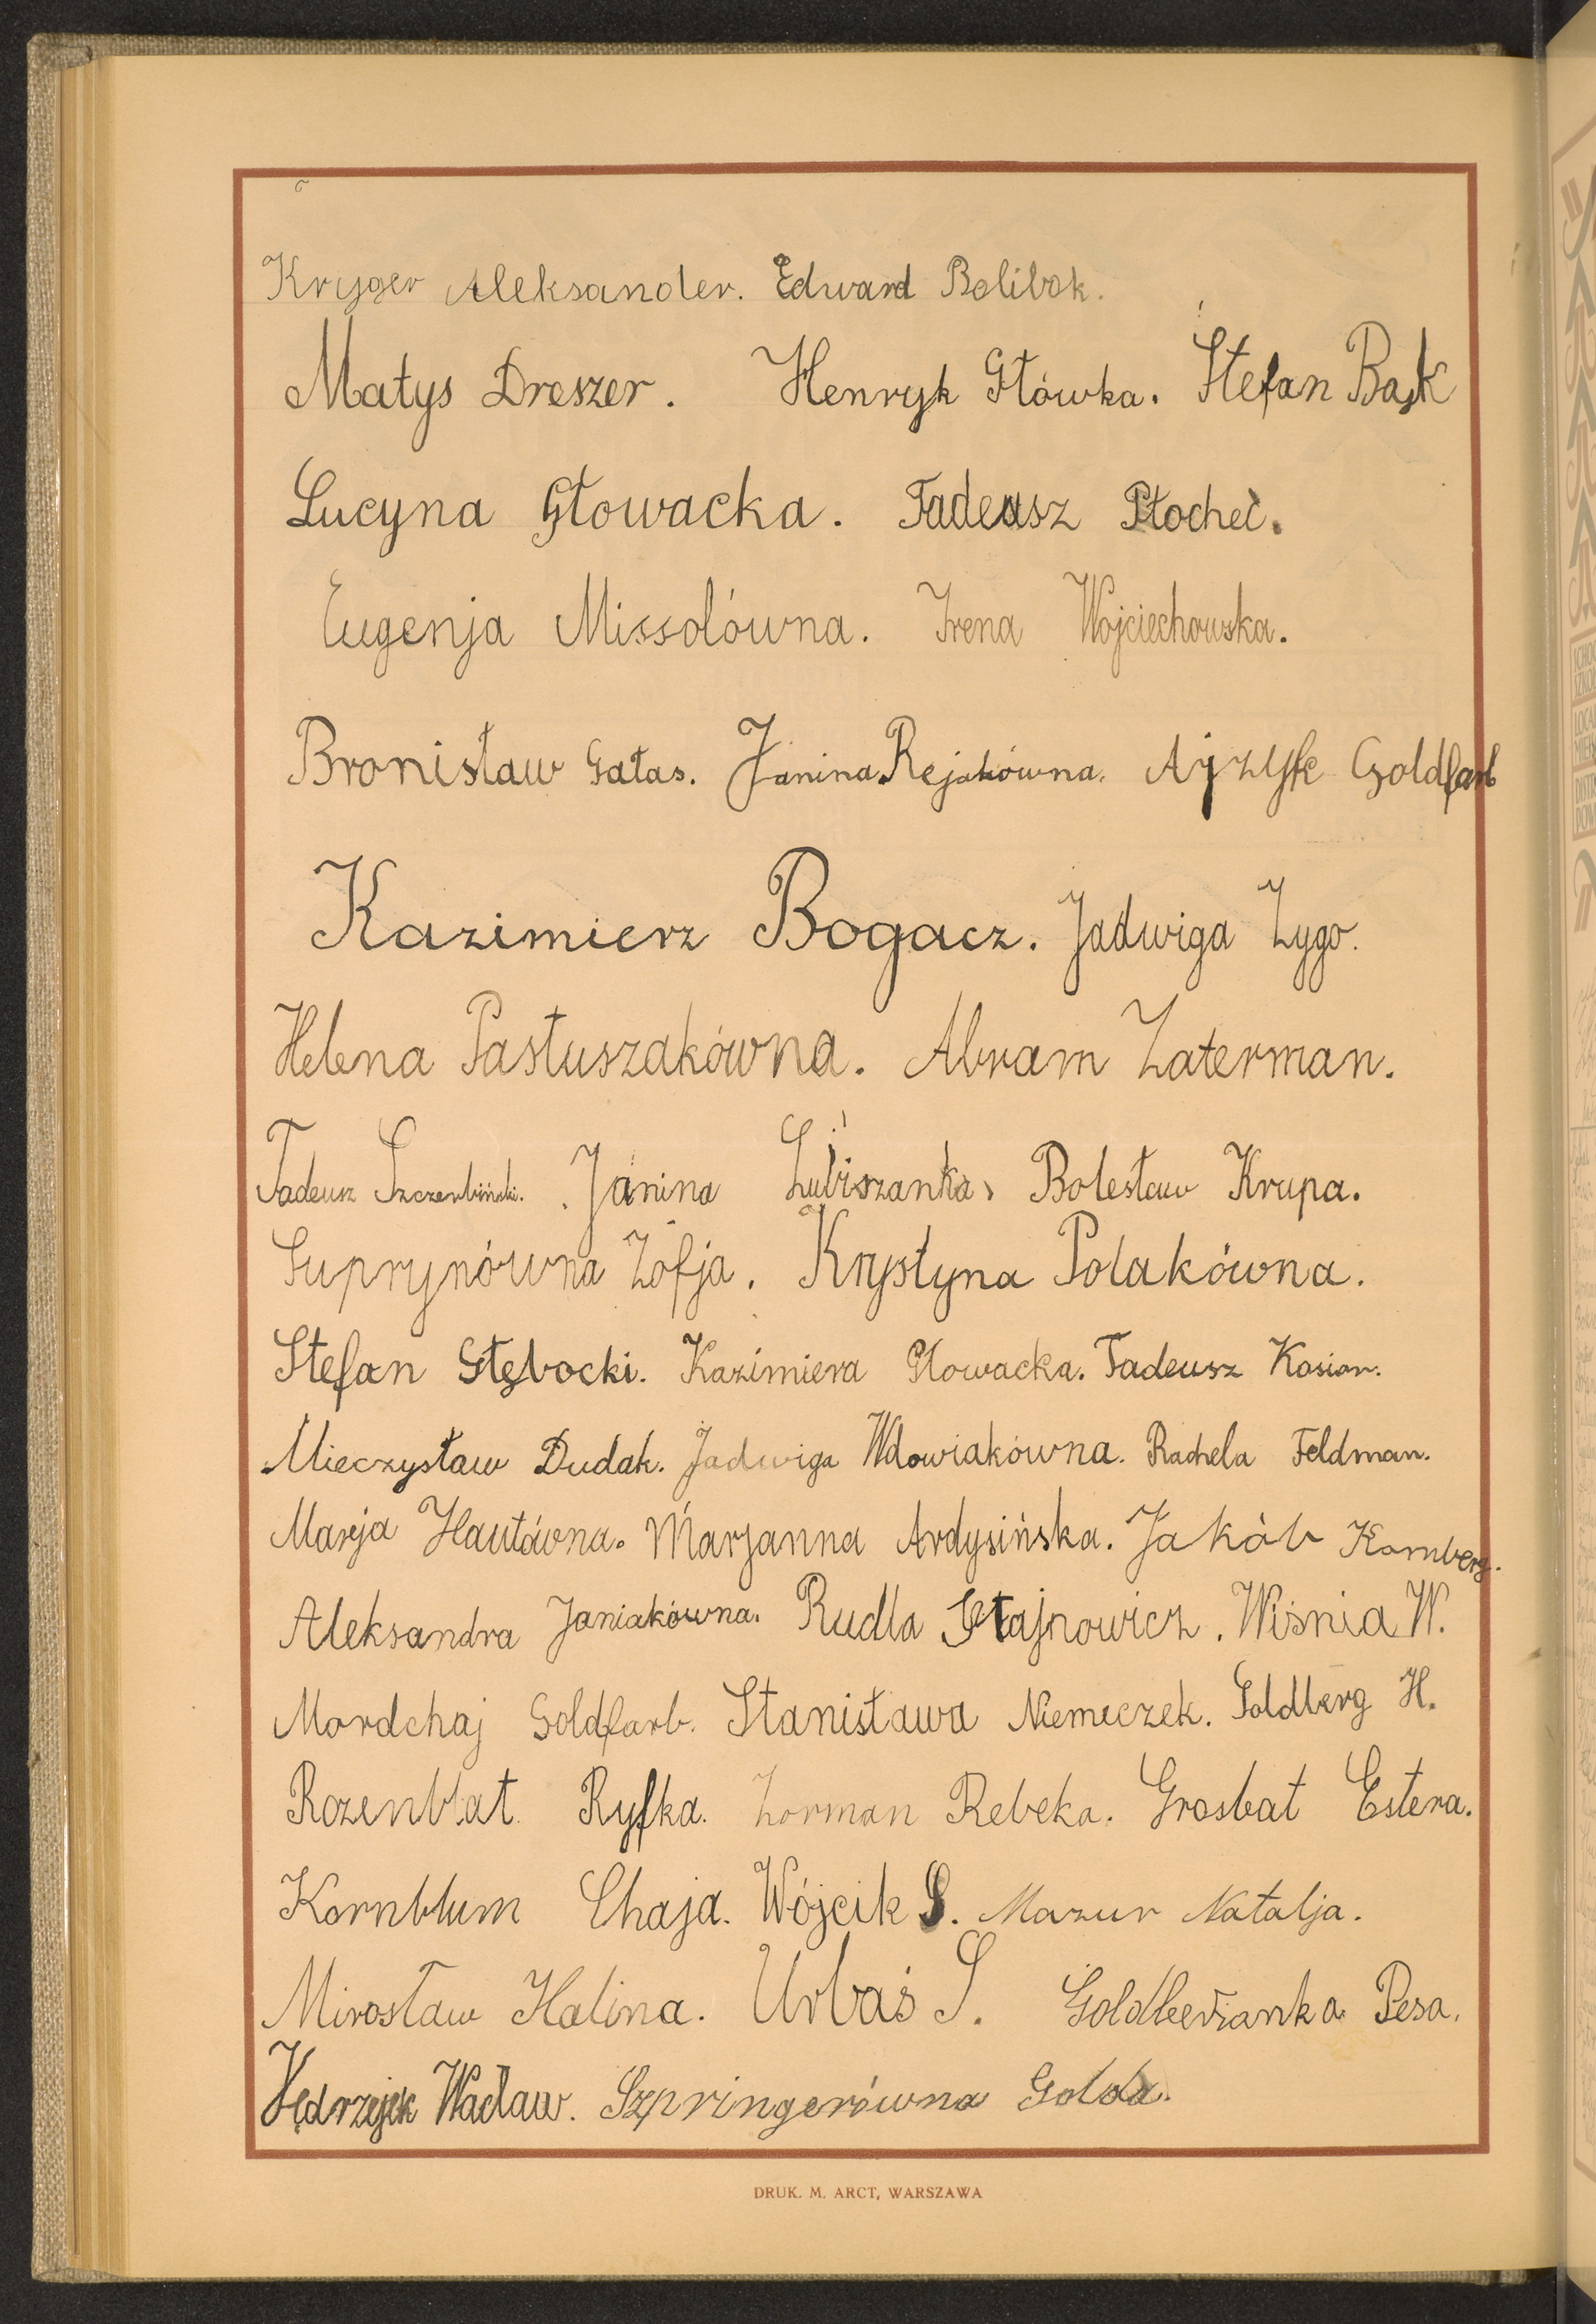 Kryger Aleksander. Edward Bolibok.
Matys Dreszer. Henryk Główka. Stefan Bąk
Lucyna Głowacka. Tadeusz Płocheć.
Eugenja Missolówna. Irena Wojciechowska.
Bronisław Gałas. Janina Rejakówna. Ajzyk Goldfarb
Kazimierz Bogacz. Jadwiga Zygo.
Helena Pastuszakówna. Abram Laterman.
Tadeusz Szczerbiński. Janina Lubiszanka. Bolesław Krupa.
Suprynówna Zofja. Krystyna Polakówna.
Stefan Głębocki. Kazimiera Głowacka. Tadeusz Kosior.
Mieczysław Dudak. Jadwiga Wdowiakówna. Rachela Feldman.
Marja Hautówna. Marjanna Ardysińska. Jakób Kornberg.
Aleksandra Janiakówna. Rudla Sztajnowicz. Wiśnia W.
Mordchaj Goldfarb. Stanisława Niemeczek. Goldberg H.
Rozenblat Ryfka. Lorman Rebeka. Grosbat Estera.
Kornblum Chaja. Wójcik S. Mazur Natalja.
Mirosław Halina. Urbaś S. Pesa.
Wacław. Szpringerówna Golda.
DRUK. M. ARCT, WARSZAWA